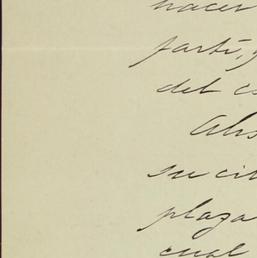 hacer
parti, y
del c
Ahs
su cit
plaza
cual